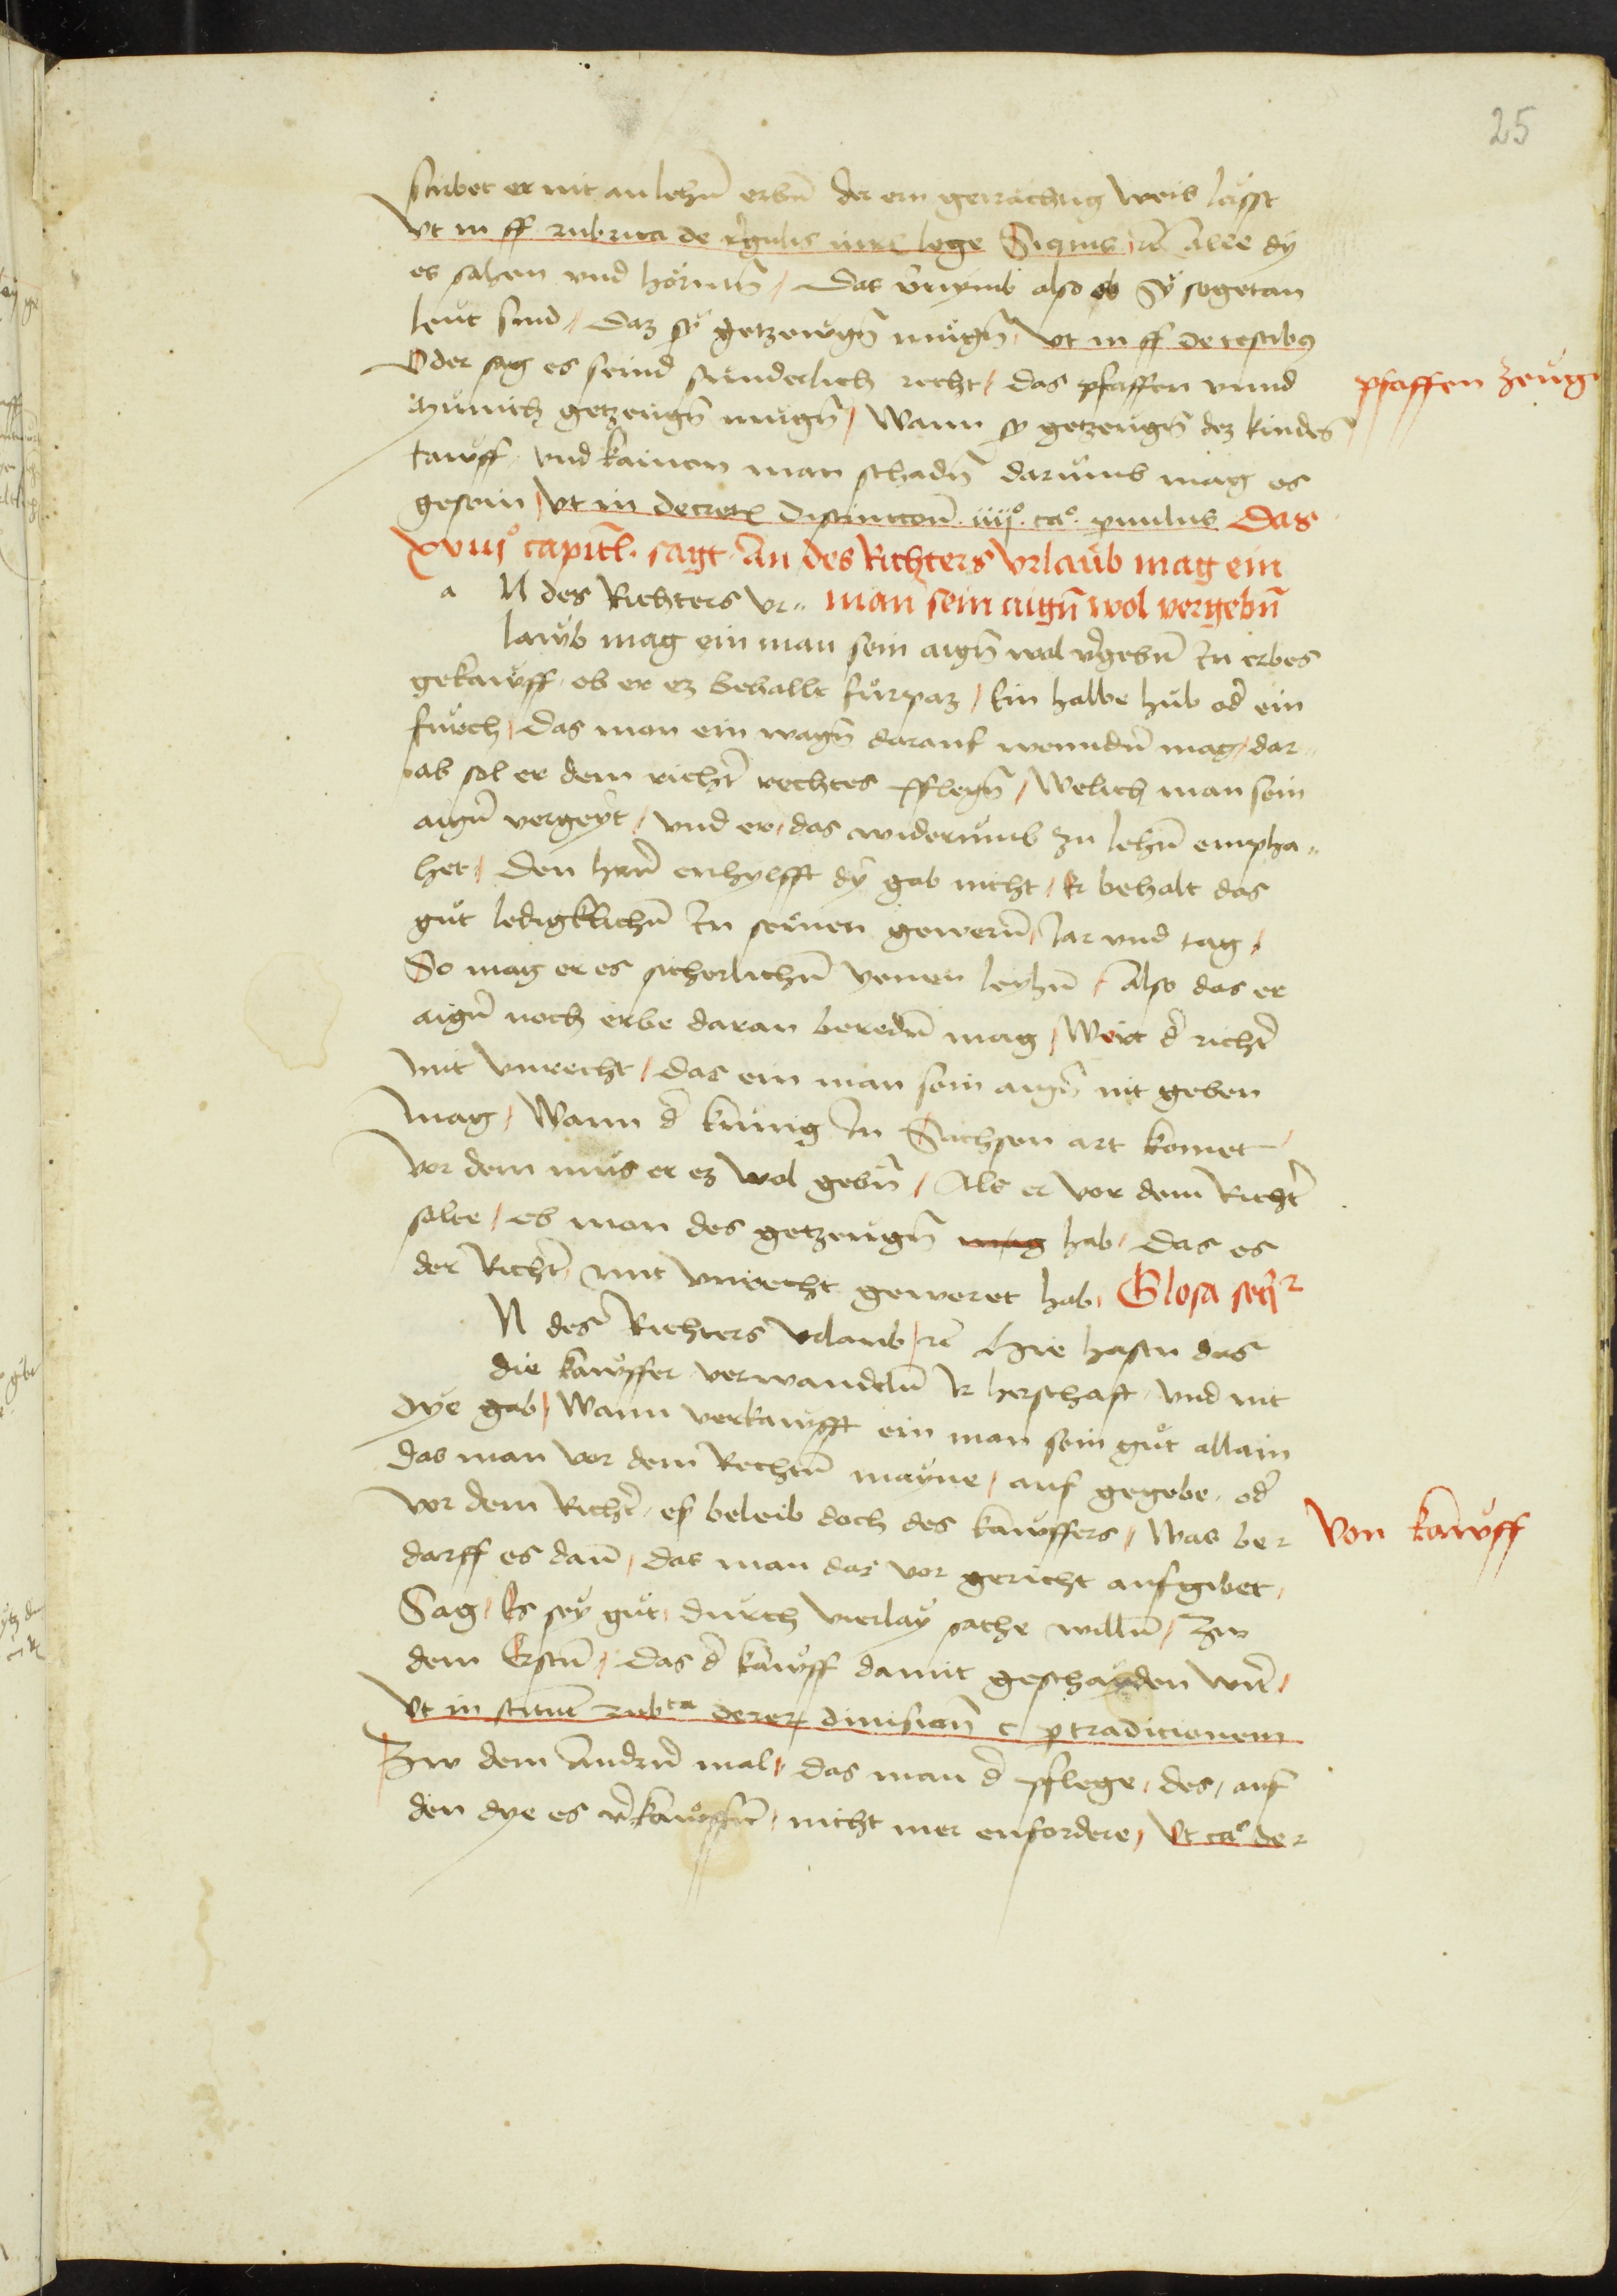 25
stirbet er nit an lehn̄ erbn̄ der ein geträchtig weib lasst
vt in ff rubrica de regulis iuris lege Siquis rc̄ Alle dÿ
es sahen vnd hörnttn̄ / Das vernymb also ob Sÿ sogetan
leut sind / Daz sÿ getzewgn̄ mügn̄ / vt in ff de testibꝯ
Oder sag es seind sunderlich recht / das pfaffen vnnd
pfaffen zeug
Münich getzeugn̄ mügn̄ / Wann sy getzeugn̄ dez kindes
tawff vnd kainen man schadn̄ darumb mag es
gesein / vt in decretꝭ distinccōn̄ . iiijº . caº . pnulus Das
xviijº capitl̄ . sagt . An des Richters vrlaub mag ein
a N des Richters vr= man sein aign̄ wol vergebn̄
lawb mag ein man sein aign̄ wol v̄gebn̄ In erbes
gekawff ob er ez behallt fürpaz / Ein halbe hub od̄ ein
fuech / Das man ein wagn̄ darauf wenndn̄ mag / dar=
ab sol er dem richt̄ rechtes pflegn̄ / Welich man sein
aign̄ vergeyt / vnd er / das widerumb zu lehn̄ empha=
het / Den hrn̄ enhylfft dÿ gab nicht / Er behalt das
gut ledigklichn̄ In seinen gewern̄ / Jar vnd tag /
So mag er es sicherlichn̄ yenen leyhn̄ / Also das er
aign̄ noch erbe daran beredn̄ mag / Wert d̄ richt̄
mit vnrecht / das ein man sein aign̄ nit geben
mag / Wann d̄ künig In Sachsen art komet /
vor dem mus er ez wol gebn̄ / Als er vor dem Richt̄
solte / ob man des getzeugn̄ mag hab / Das es
der Richt̄ mit vnrecht geweret hab / Glosa seqr
N des Richters vrlaub / rc̄ Hie hastu das
die kawffer verwandeln̄ Ir herschaft / vnd nit
dye gab / Wann verkawfft ein man sein gut allain
das man vor dem Rechtn̄ mayne / auf gegebe / od̄
vor dem Richt̄ / es beleib doch des kawffers / Was be=
Von kawff
darff es dan̄ / das man das vor gericht aufgibet /
Sag / Es seÿ gut / durch vierlay sache willn̄ / Zw
dem Erstn̄ / Das d̄ kawff damit geschayden wer̄ /
vt in stitut̄ rubca derer diuision̄ c ꝑ tradicionem
Zw dem Andrn̄ mal / das man d̄ pflege / des / auf
den dye es v̄kawffn̄t / nicht mer enfordere / vt caº de=